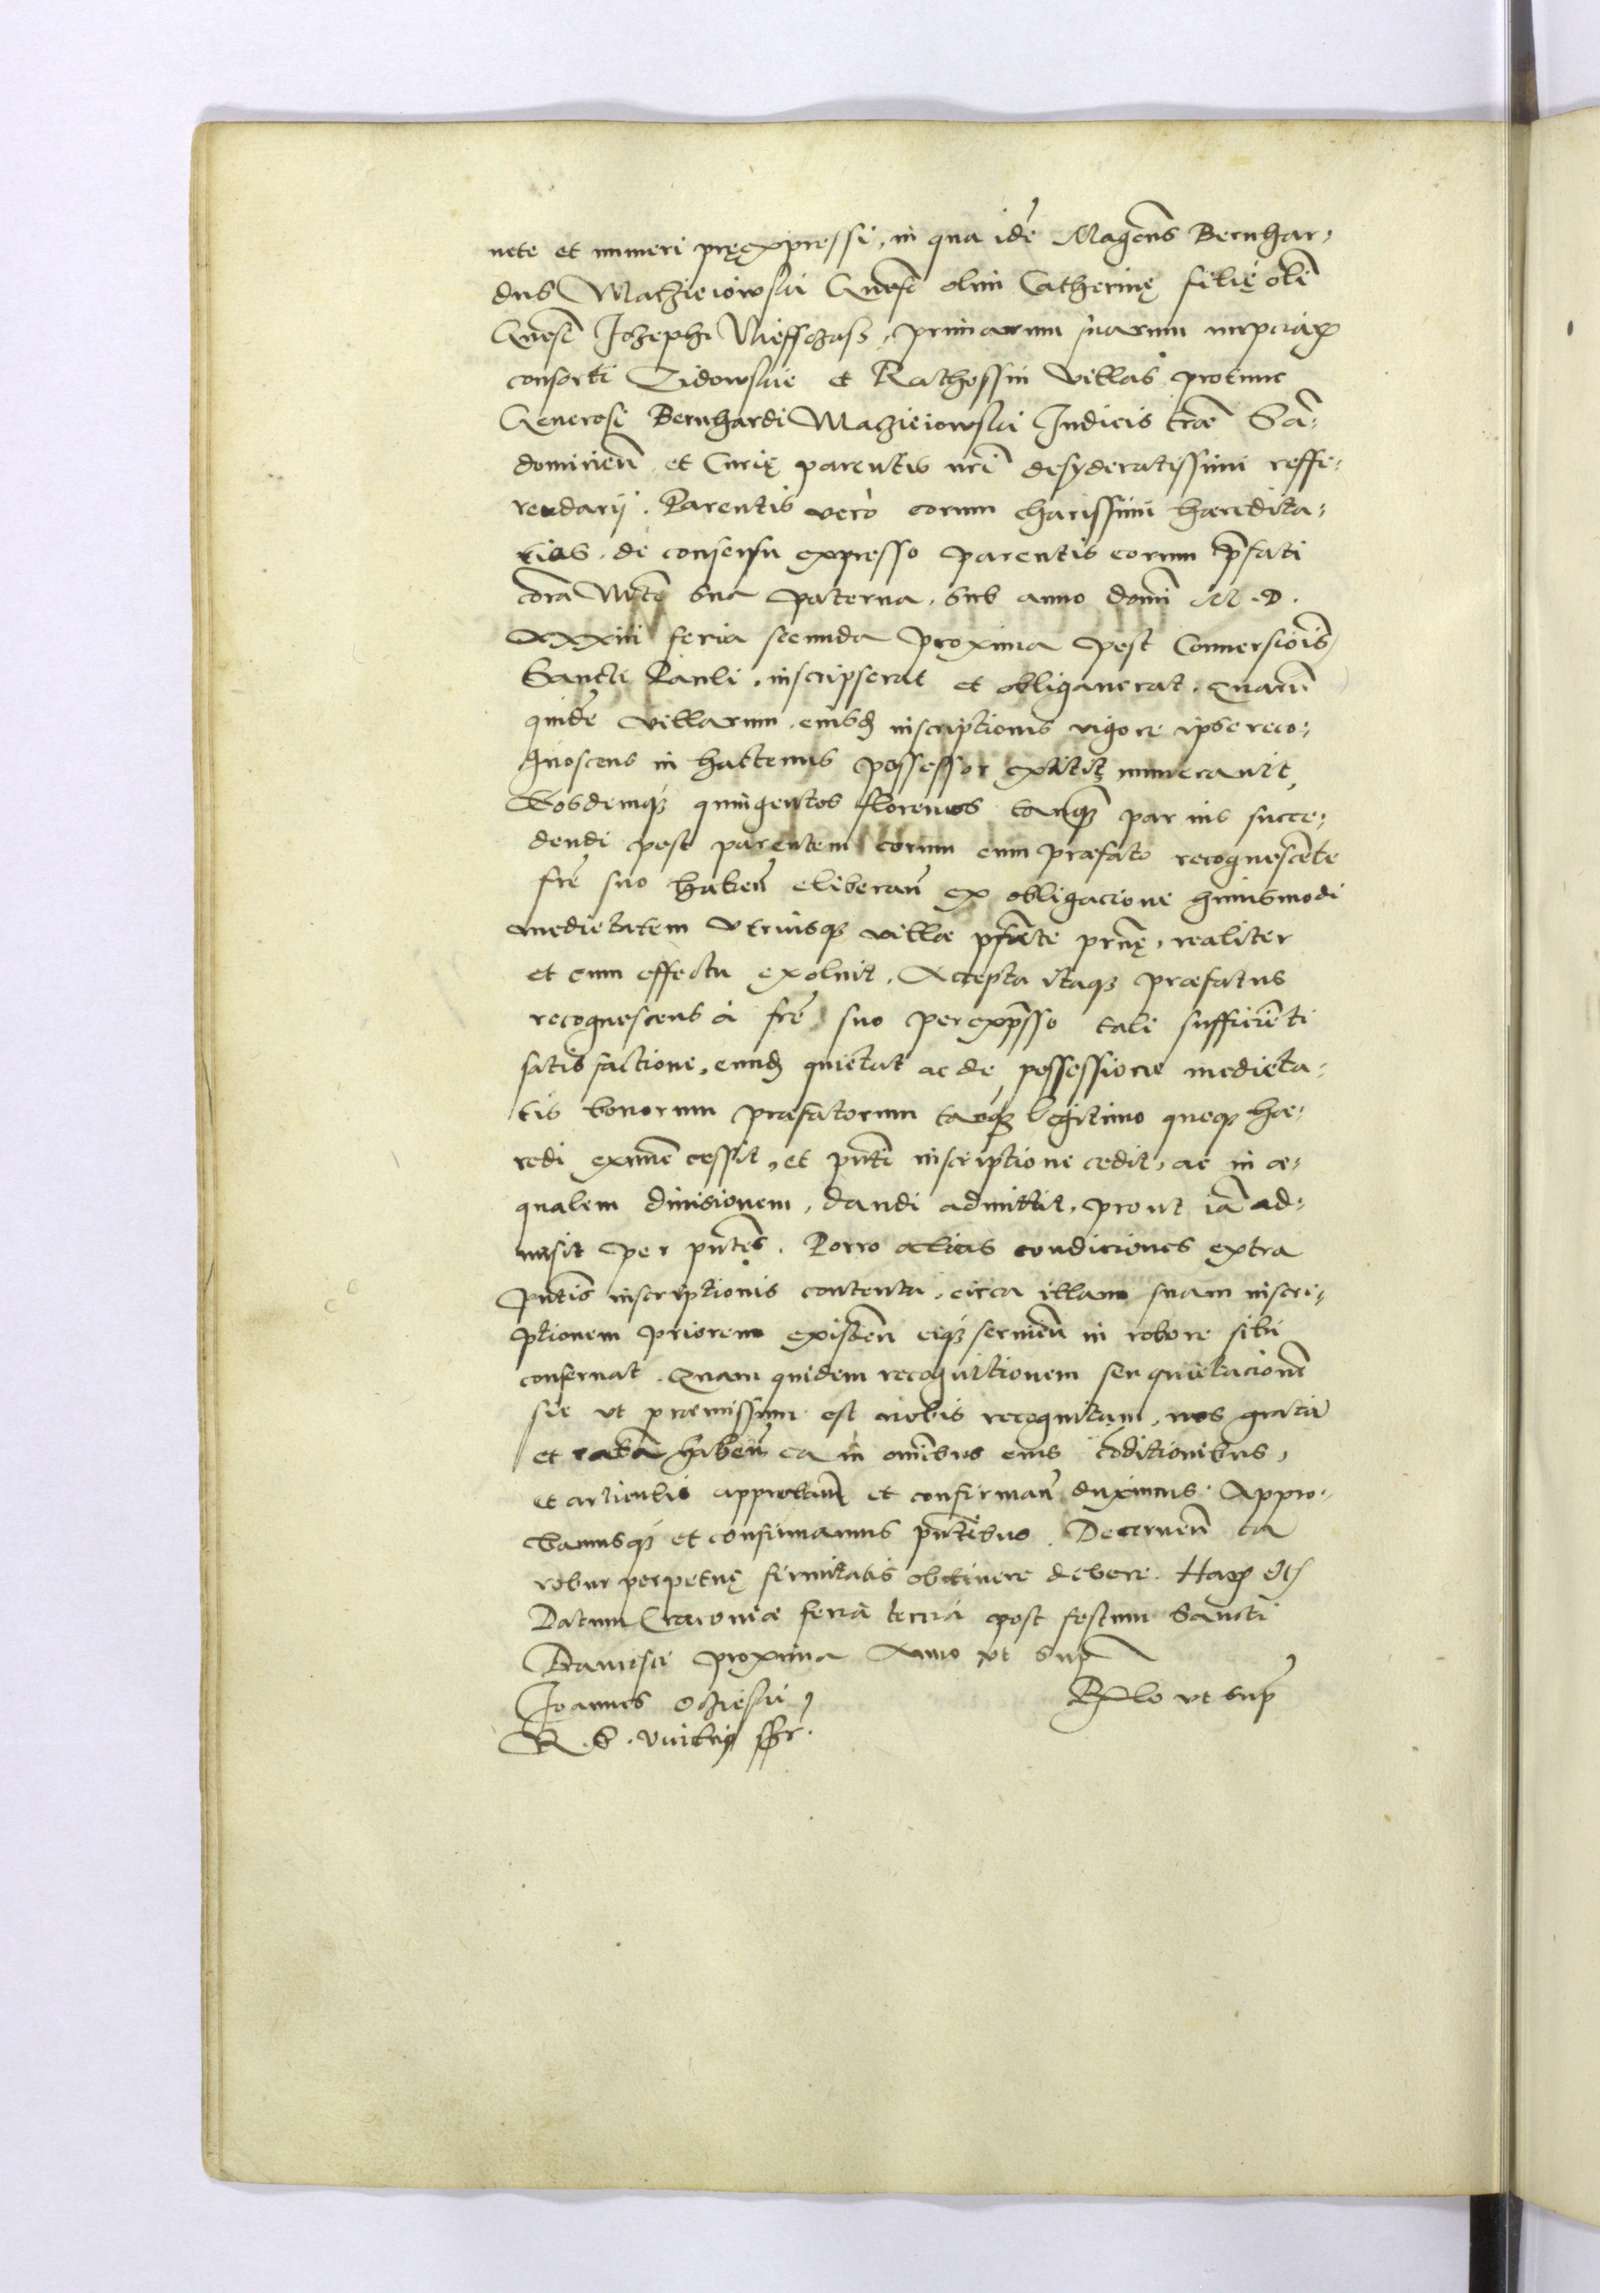 nete et numeri pręexpressi, in qua idē Magcus Bernhar-
dus Maczieiowski Gnose olim Catherinę filię olī
Gnosi Jozephi Nieffczass, primarum suarum nupciaꝝ
consorti Zidowskie et Rathossin villas protunc
Generosi Bernhardi Maczieiowski Judicis trae Sā-
domirien̄ et Curię parentis nrī desyderatissimi reffe-
rendarij. Parentis verò eorum charissimi hæredita-
rias. de consensu expresso parentis eorum p̄fati
corā Mte sua paterna, sub anno domī M.D.
XXXiii feria secunda proxima post Conuersiōis
Sancti Pauli, inscripserat et obligauerat, quarū
quidē villarum eiusdē inscriptionis vigore ipse reco-
gnoscens in hactenus possessor extitit numerauit,
Eosdemq́ꝫ quingentos florenos tanqꝫ par ius succe-
dendi post parentem eorum cum præfato recognoscēte
frē suo haben̄ eliberan̄ ex obligacione huiusmodi
medietatem vtriusqꝫ villæ realiter
et cum effectu exoluit. Accepta itaqꝫ præfatus
recognoscens à frē suo perexp̄sso tali sufficiēti
satisfactione, eundē quietat ac de possessione medieta-
tis bonorum præfatorum tanqꝫ legitimo queqꝫ hæ-
redi eximē cessit, et pn̄ti inscriptione cedit, ac in æ-
qualem diuisionem, dandi admittit, prout iā ad-
misit per pn̄tes. Porro alias condiciones extra
pn̄tis inscriptionis contenta, circa illam suam inscri-
ptionem priorem existen̄ eiqꝫ seruien̄ in robore sibi
conseruat. Quam quidem recognitionem seu quietacionē
sic vt præmissum est nobis recognitam, nos gratā
et ratā haben̄ ea in omībus eius cōditionibus,
et articulis approban̄ et confirman̄ duximus. Appro-
bamusqꝫ et confirmamus pn̄tibus. Decernen̄ ea
robur perpetuę firmitatis obtinere debere. Haꝝ etc
Datum Cracouiæ feria tercia post festum Sancti
Francisci proxima Anno vt supra
Joannes Ocziesski Rlo vt sup
R. S.